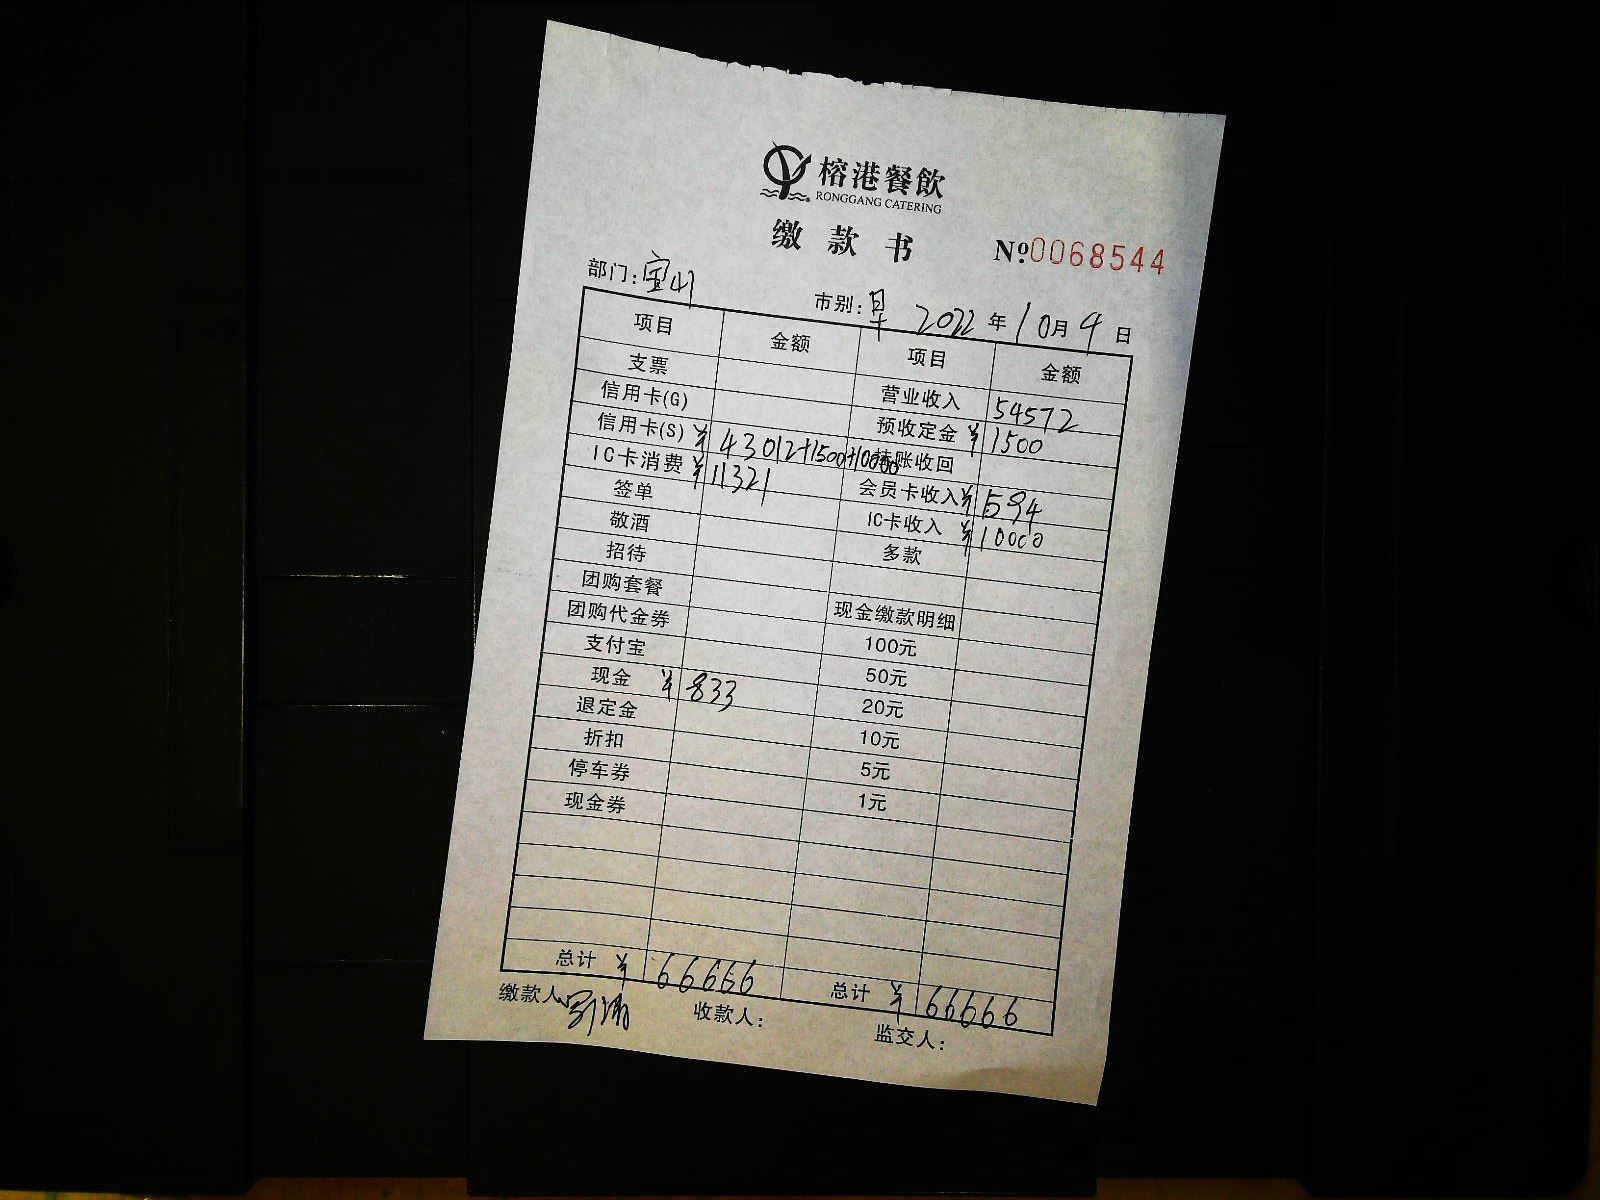 榕港餐飲
RONGGANG CATERING
缴款书 Nº:0068544
部门:宝山 市别:早 2022年10月4日
项目 金额 项目 金额
支票 营业收入 54572
信用卡(G) 预收定金 ¥1500
信用卡(S) ¥43012+1500+10000 挂账收回
IC卡消费 ¥11321 会员卡收入 ¥594
签单 IC卡收入 ¥10000
敬酒 多款
招待
团购套餐 现金缴款明细
团购代金券 100元
支付宝 50元
现金 ¥833 20元
退定金 10元
折扣 5元
停车券 1元
现金券
总计 ¥66666 总计 ¥66666
缴款人 收款人: 监交人: